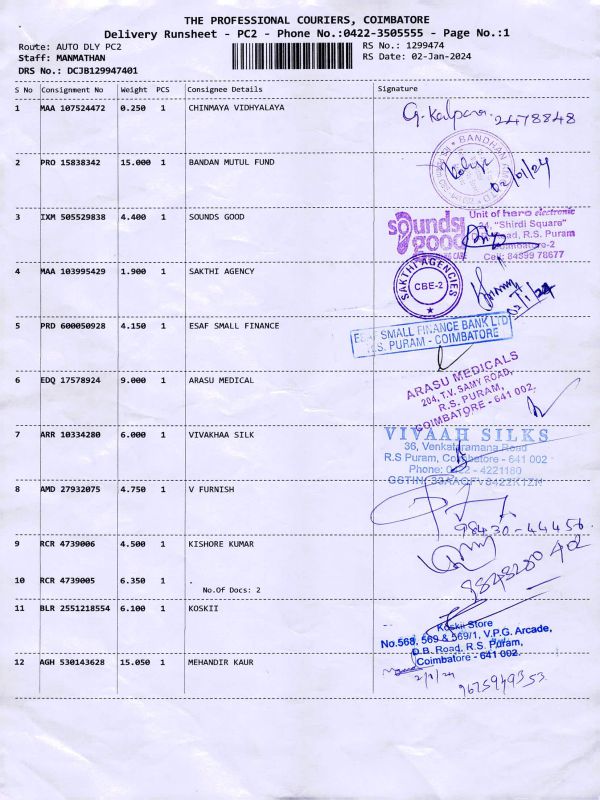 THE PROFESSIONAL COURIERS, COIMBATORE
Delivery Runsheet - PC2 - Phone No.:0422-3505555 - Page No.:1
Route: AUTO DLY PC2
RS No.: 1299474
Staff: MANMATHAN
RS Date: 02-Jan-2024
DRS No.: DCJB129947401
S No Consignment No Weight PCS Consignee Details Signature
1 MAA 107524472 0.250 1 CHINMAYA VIDHYALAYA
G. Kalpana. 2478848
2 PRO 15838342 15.000 1 BANDAN MUTUL FUND
BANDHAN
02/01/24
3 IXM 505529838 4.400 1 SOUNDS GOOD
sounds good
Unit of hero electronic
"Shirdi Square"
Road, R.S. Puram
Coimbatore-2
Cell: 84399 78677
4 MAA 103995429 1.900 1 SAKTHI AGENCY
SAKTHI AGENCIES
CBE-2
02/1/24
5 PRD 600050928 4.150 1 ESAF SMALL FINANCE
ESAF SMALL FINANCE BANK LTD
R.S. PURAM - COIMBATORE
6 EDQ 17578924 9.000 1 ARASU MEDICAL
ARASU MEDICALS
204, T.V. SAMY ROAD,
R.S. PURAM,
COIMBATORE - 641 002.
7 ARR 10334280 6.000 1 VIVAKHAA SILK
VIVAAH SILKS
36, Venkataramana Road
R.S Puram, Coimbatore - 641 002
Phone: 0422 - 4221180
GSTIN: 33AAGFV8422K1ZN
8 AMD 27932075 4.750 1 V FURNISH
98430-44456
9 RCR 4739006 4.500 1 KISHORE KUMAR
9843280402
10 RCR 4739005 6.350 1 .
No.Of Docs: 2
11 BLR 2551218554 6.100 1 KOSKII
Koskii Store
No.568, 569 & 569/1, V.P.G. Arcade,
D.B. Road, R.S. Puram,
Coimbatore - 641 002.
12 AGH 530143628 15.050 1 MEHANDIR KAUR
2/1/24
9675949353